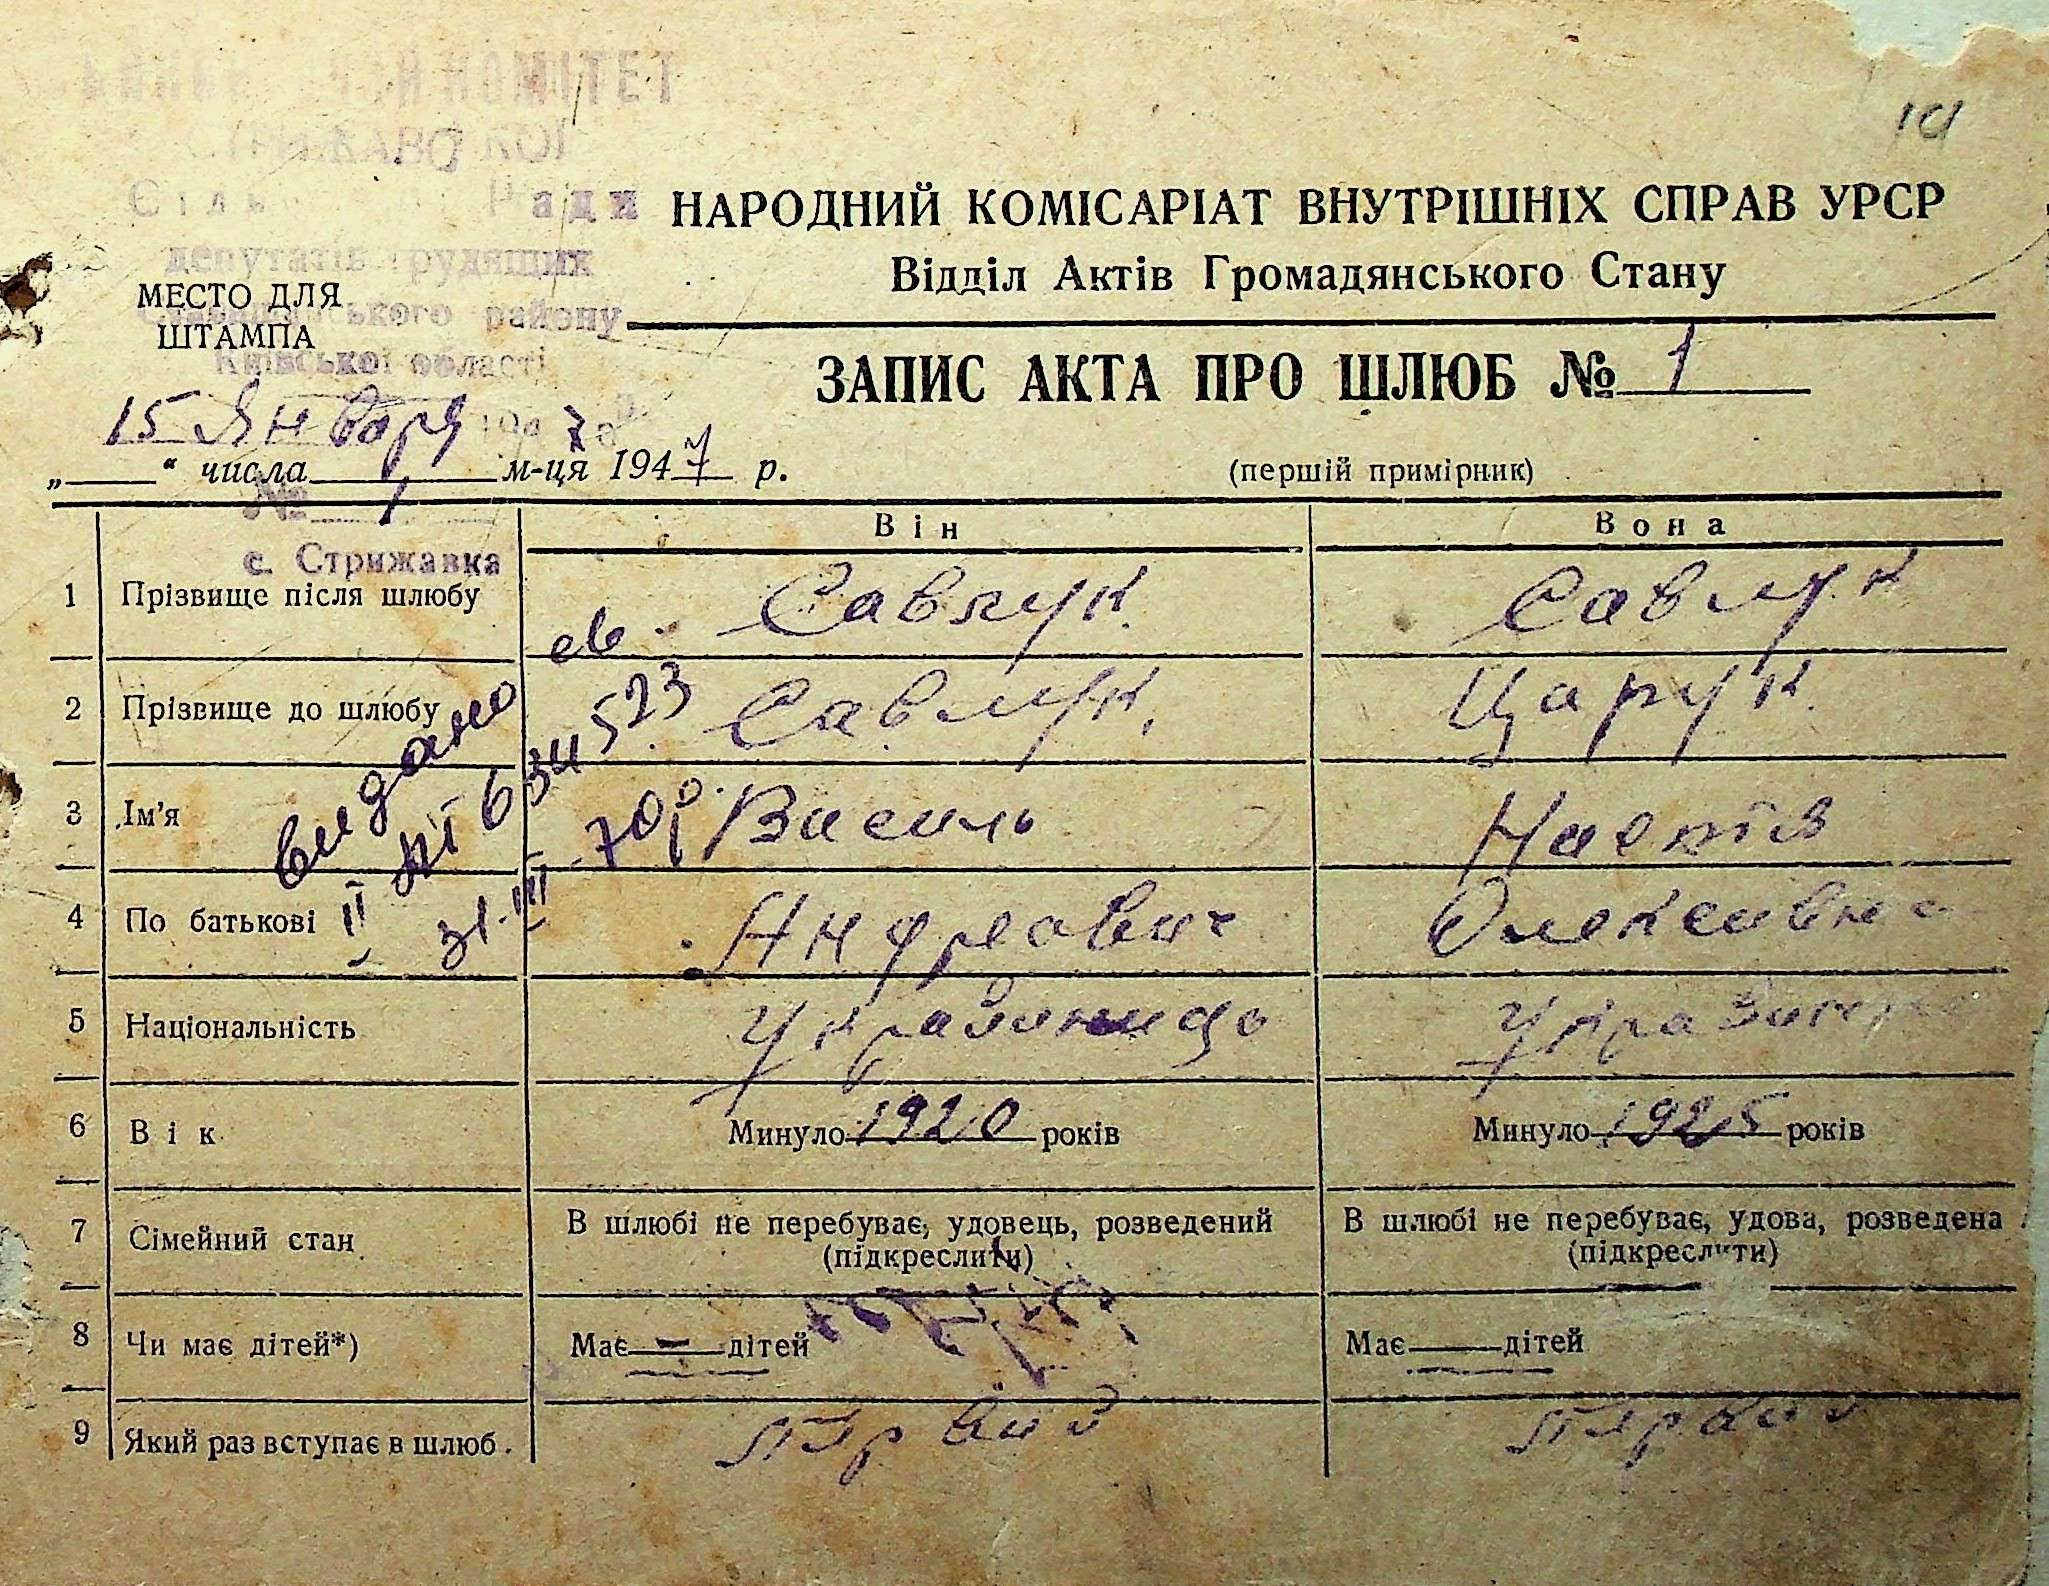 19
КОМІТЕТ
СТРИЖАВСЬКОЇ
Ради
депутатів трудящих
ського району
Київської області
НАРОДНИЙ КОМІСАРІАТ ВНУТРІШНІХ СПРАВ УРСР
Відділ Актів Громадянського Стану
МЕСТО ДЛЯ
ШТАМПА
ЗАПИС АКТА ПРО ШЛЮБ № 1
15 Января 7
„ “ числа м-ця 1947 р.
(першій примірник)
№ 1
с. Стрижавка
Він Вона
1 Прізвище після шлюбу Савлук Савлук
2 Прізвище до шлюбу Савлук Царук
3 Ім'я Василь Настія
4 По батькові Андреович Олексеивна
видано
св. II 634523
31.III-70р.
5 Національність
6 Вік Минуло 1920 років Минуло 1925 років
7 Сімейний стан В шлюбі не перебуває, удовець, розведений В шлюбі не перебуває, удова, розведена
(підкреслити) (підкреслити)
8 Чи має дітей*) Має — дітей Має дітей
9 Який раз вступає в шлюб. первий первий